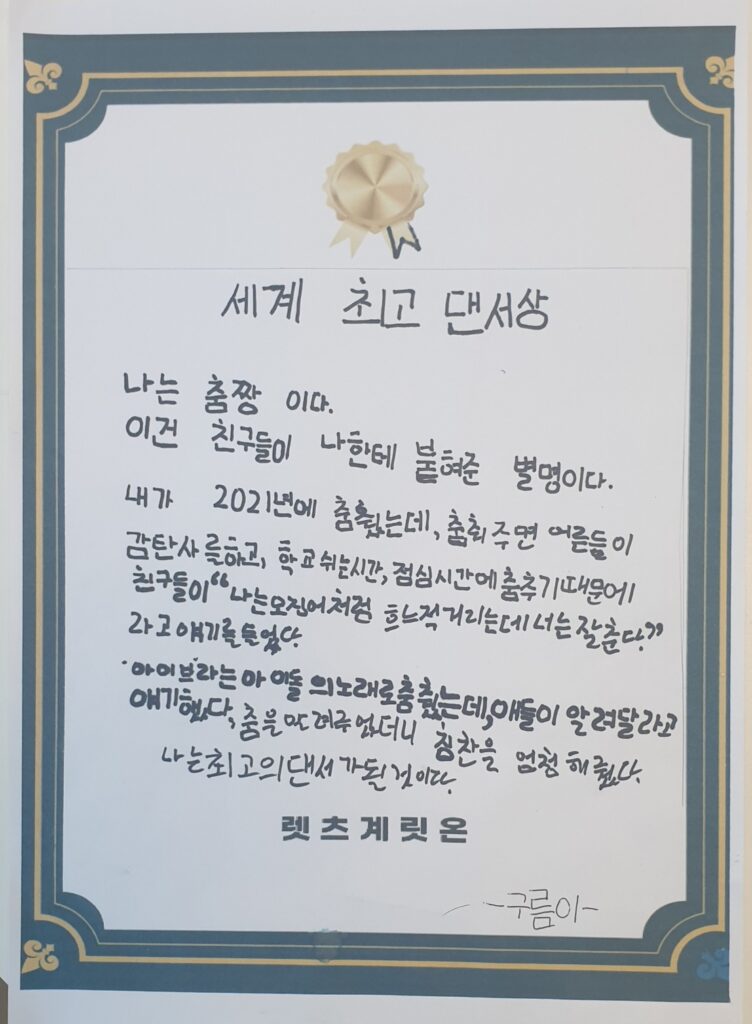 세계 최고 댄서상
나는 춤짱 이다.
이건 친구들이 나한테 붙혀준 별명이다.
내가 2021년에 춤췄는데, 춤춰주면 어른들이
감탄사를하고, 학교 쉬는시간, 점심시간에 춤추기때문에
친구들이 “나는오징어처럼 흐느적거리는데 너는 잘춘다.”
라고 얘기를 들었다.
아이브라는 아이돌의노래로춤췄는데, 애들이 알려달라고
얘기했다, 춤을 알려주었더니 칭찬을 엄청 해줬다.
나는최고의댄서가될것이다.
렛츠계릿온
-구름이-